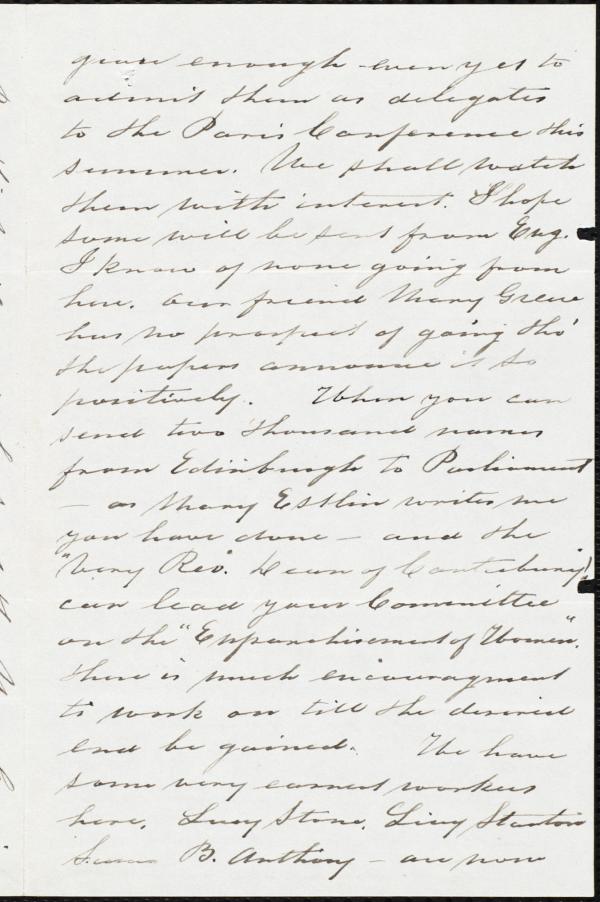 grace enough even yet to
admit them as delegates
to the Paris Conference this
summer. We shall watch
them with interest. I hope
some will be sent from Eng.
I know of none going from
here. Our friend Mary Grew
has no prospect of going tho'
the papers announce it so
positively. When you can
send two thousand names
from Edinburgh to Parliament
— as Mary Estlin writes me
you have done — and the
"Very Rev. Dean of Canterbury"
can lead your Committee
on the "Enfranchisement of Women",
there is much encouragment
to work on till the desired
end be gained. We have
some very earnest workers
here. Lucy Stone, Stanton
Susan B. Anthony — are now